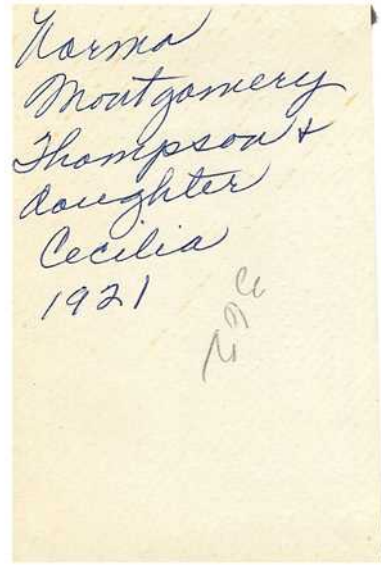 Norma
Montgomery
Thompson &
daughter
Cecilia
1921